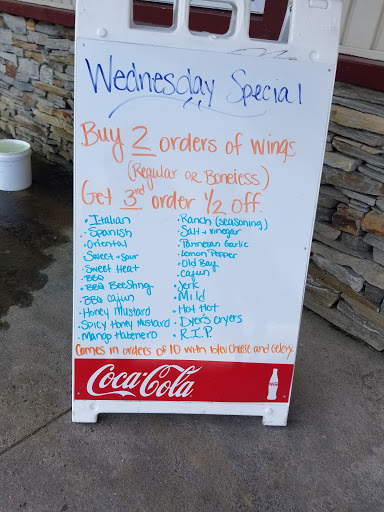 Wednesday Special
Buy 2 orders of wings
(Regular or Boneless)
Get 3rd order 1/2 off.
• Italian
• Spanish
• Oriental
• Sweet + Sour
• Sweet Heat
• BBQ
• BBQ BeeSting
• BBQ Cajun
• Honey Mustard
• Spicy Honey Mustard
• Mango Habenero
• Ranch (seasoning)
• Salt + Vinegar
• Parmesan Garlic
• Lemon Pepper
• Old Bay
• Cajun
• Jerk
• Mild
• Hot Hot
• Dyer's Cryers
• R.I.P.
Comes in orders of 10 with bleu cheese and celery.
Coca-Cola